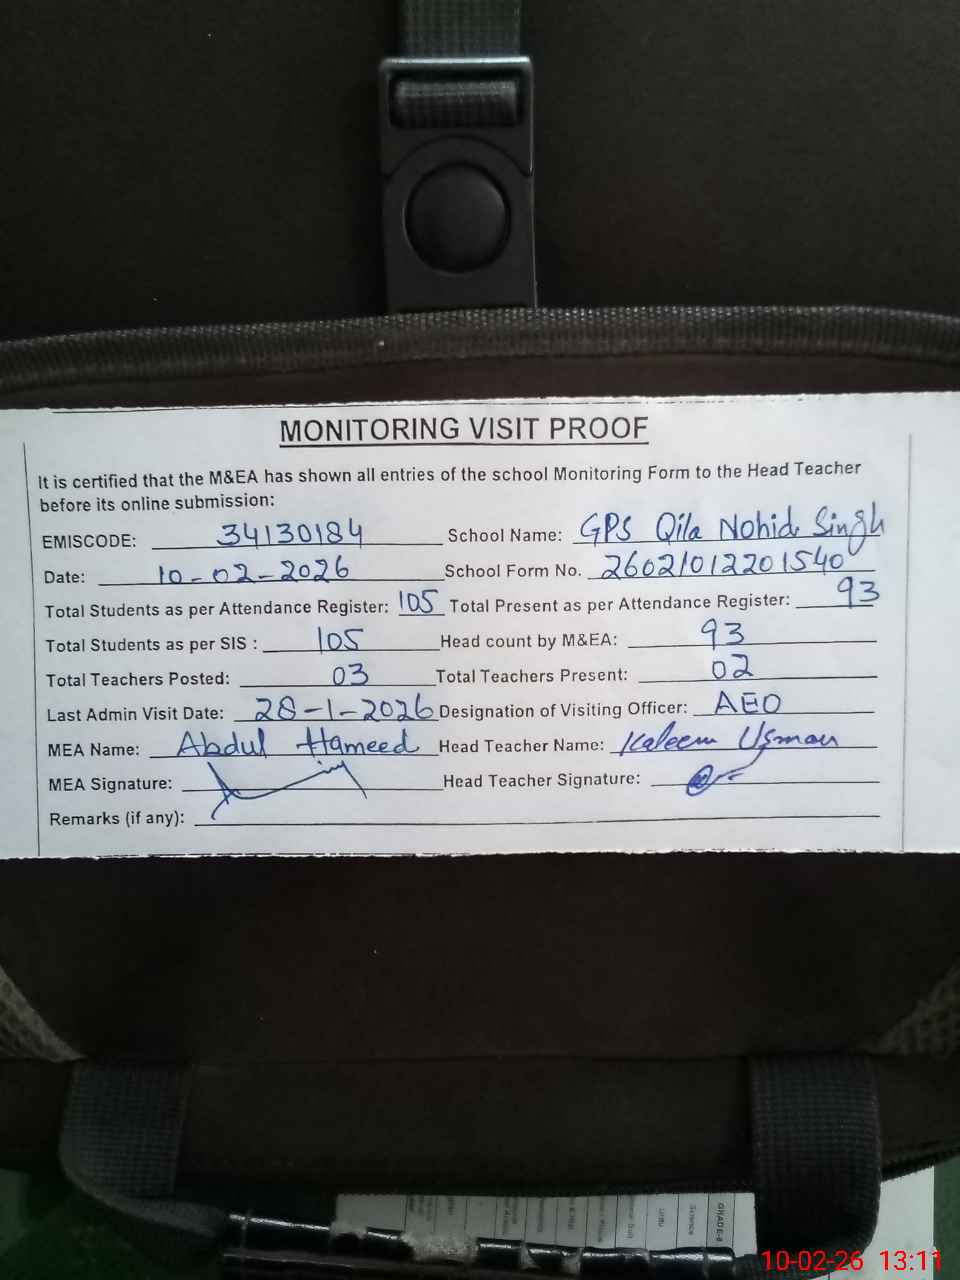 MONITORING VISIT PROOF
It is certified that the M&EA has shown all entries of the school Monitoring Form to the Head Teacher
before its online submission:
EMISCODE: 34130184 School Name: GPS Qila Nohid Singh
Date: 10-02-2026 School Form No. 26021012201540
Total Students as per Attendance Register: 105 Total Present as per Attendance Register: 93
Total Students as per SIS : 105 Head count by M&EA: 93
Total Teachers Posted: 03 Total Teachers Present: 02
Last Admin Visit Date: 28-1-2026 Designation of Visiting Officer: AEO
MEA Name: Abdul Hameed Head Teacher Name: Kaleem Usman
MEA Signature: Head Teacher Signature:
Remarks (if any):
GRADE-8
Science
Urdu
10-02-26 13:11